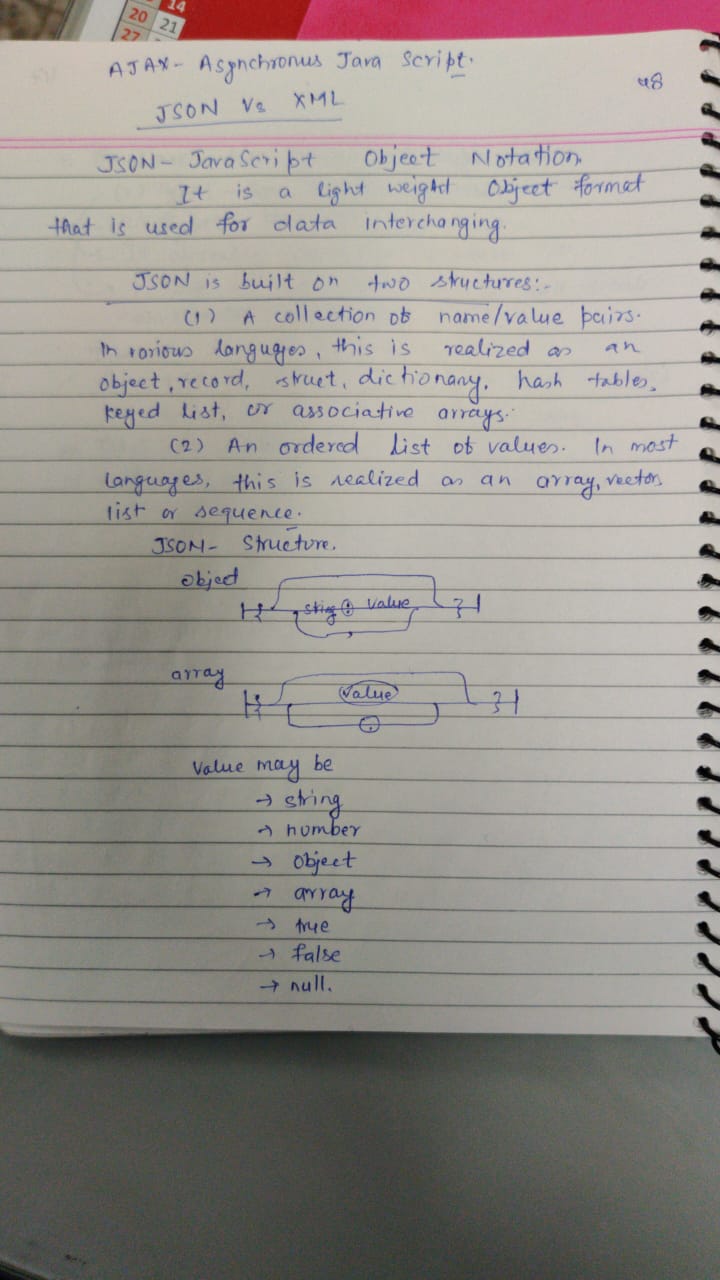 14
20 21
27
AJAX- Asynchronus Java Script.
48
JSON Vs XML
JSON- JavaScript Object Notation
It is a light weight Object format
that is used for data interchanging.
JSON is built on two structures:-
(1) A collection of name/value pairs.
In various languages, this is realized as an
object, record, struct, dictionary, hash tables,
keyed list, or associative arrays.
(2) An ordered list of values. In most
languages, this is realized as an array, vector,
list or sequence.
JSON- Structure.
object
{ string : value }
,
array
{ value }
,
Value may be
→ string
→ number
→ object
→ array
→ true
→ false
→ null.